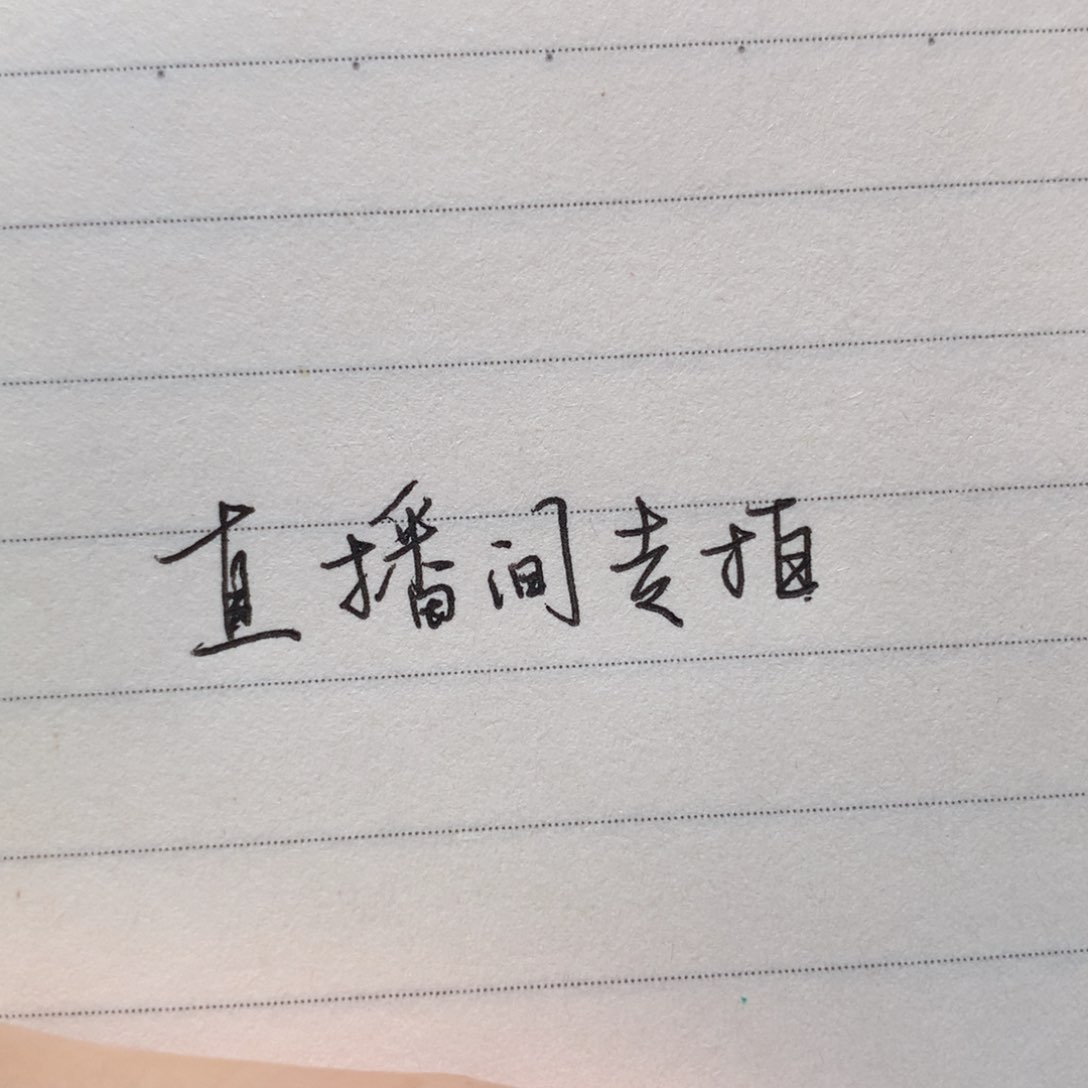 直播间专拍